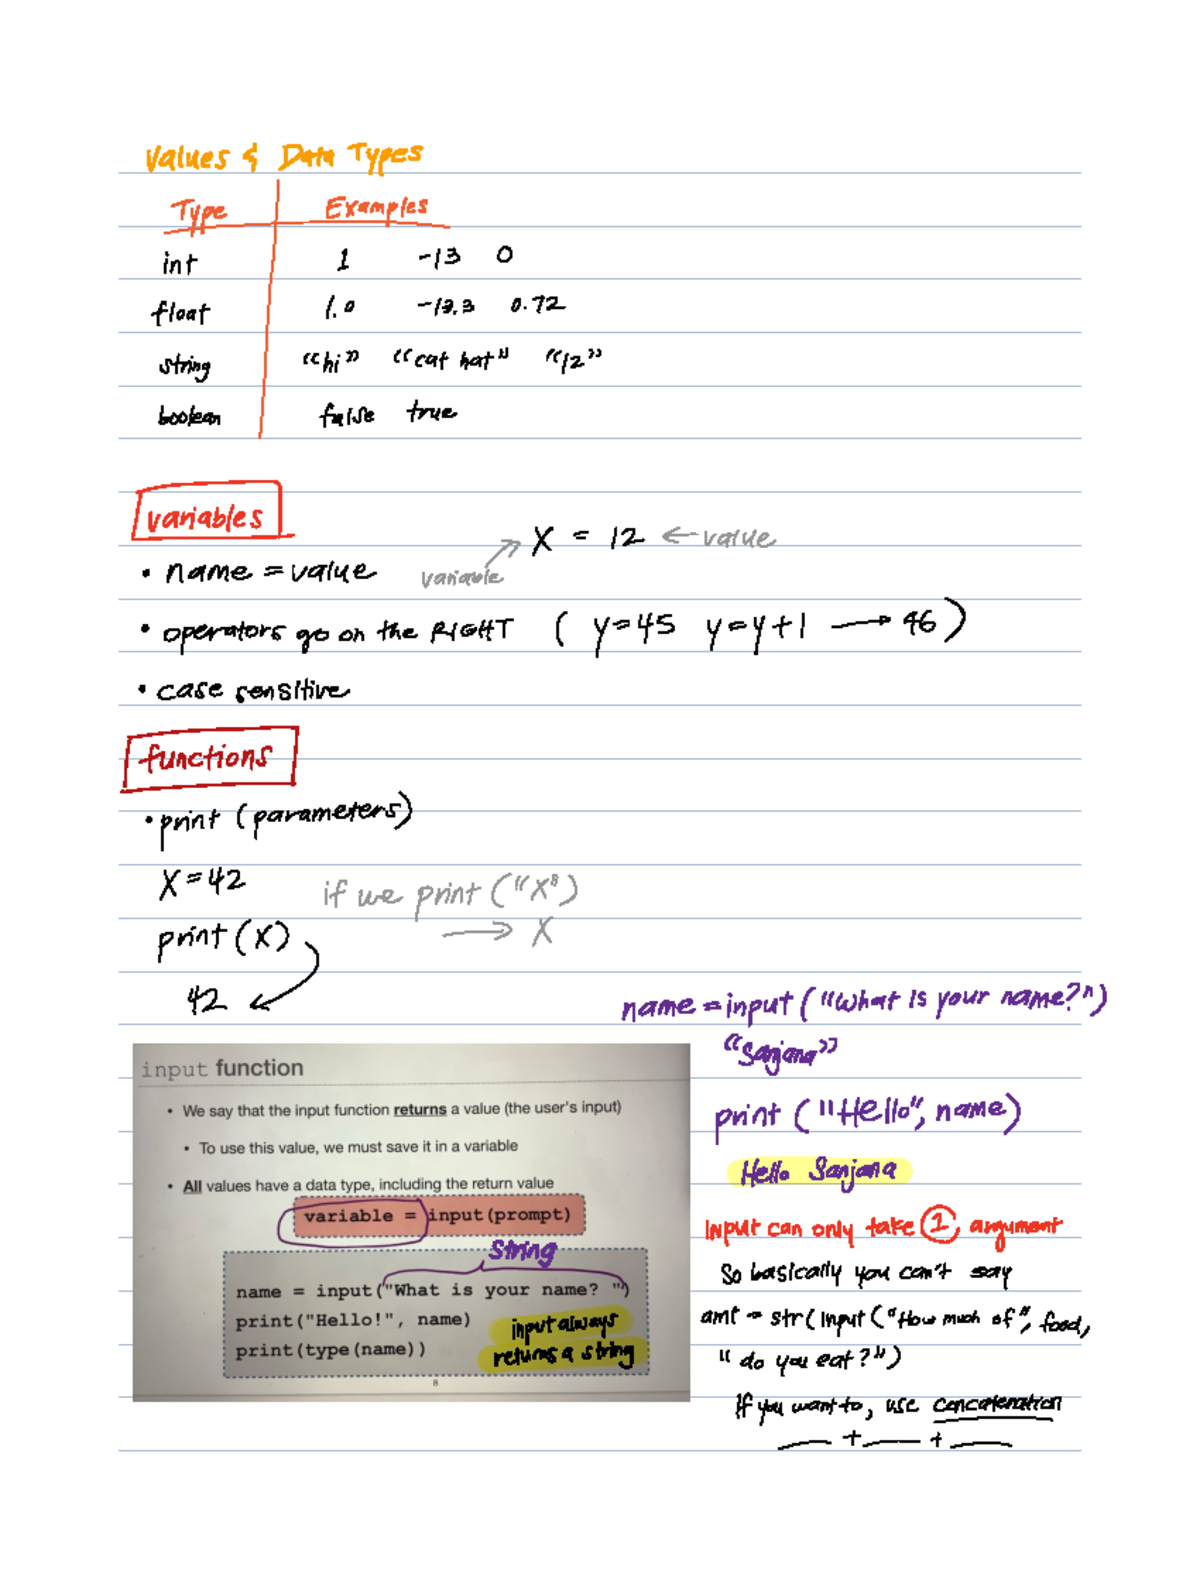 Values & Data Types
Type Examples
int 1 -13 0
float 1.0 -13.3 0.72
string "hi" "cat hat" "12"
boolean false true
variables
X = 12 ← value
• name = value variable
• operators go on the RIGHT ( y=45 y=y+1 → 46 )
• case sensitive
functions
• print (parameters)
X=42
if we print ("X")
print (X)
→ X
42
name = input ("What is your name?")
"Sanjana"
print ("Hello", name)
Hello Sanjana
input function
• We say that the input function returns a value (the user's input)
• To use this value, we must save it in a variable
• All values have a data type, including the return value
variable = input(prompt)
String
name = input("What is your name? ")
print("Hello!", name)
print(type(name))
input always
returns a string
8
Input can only take 1 argument
So basically you can't say
amt = str(input("How much of", food,
"do you eat?")
If you want to, use concatenation
__ + __ + __